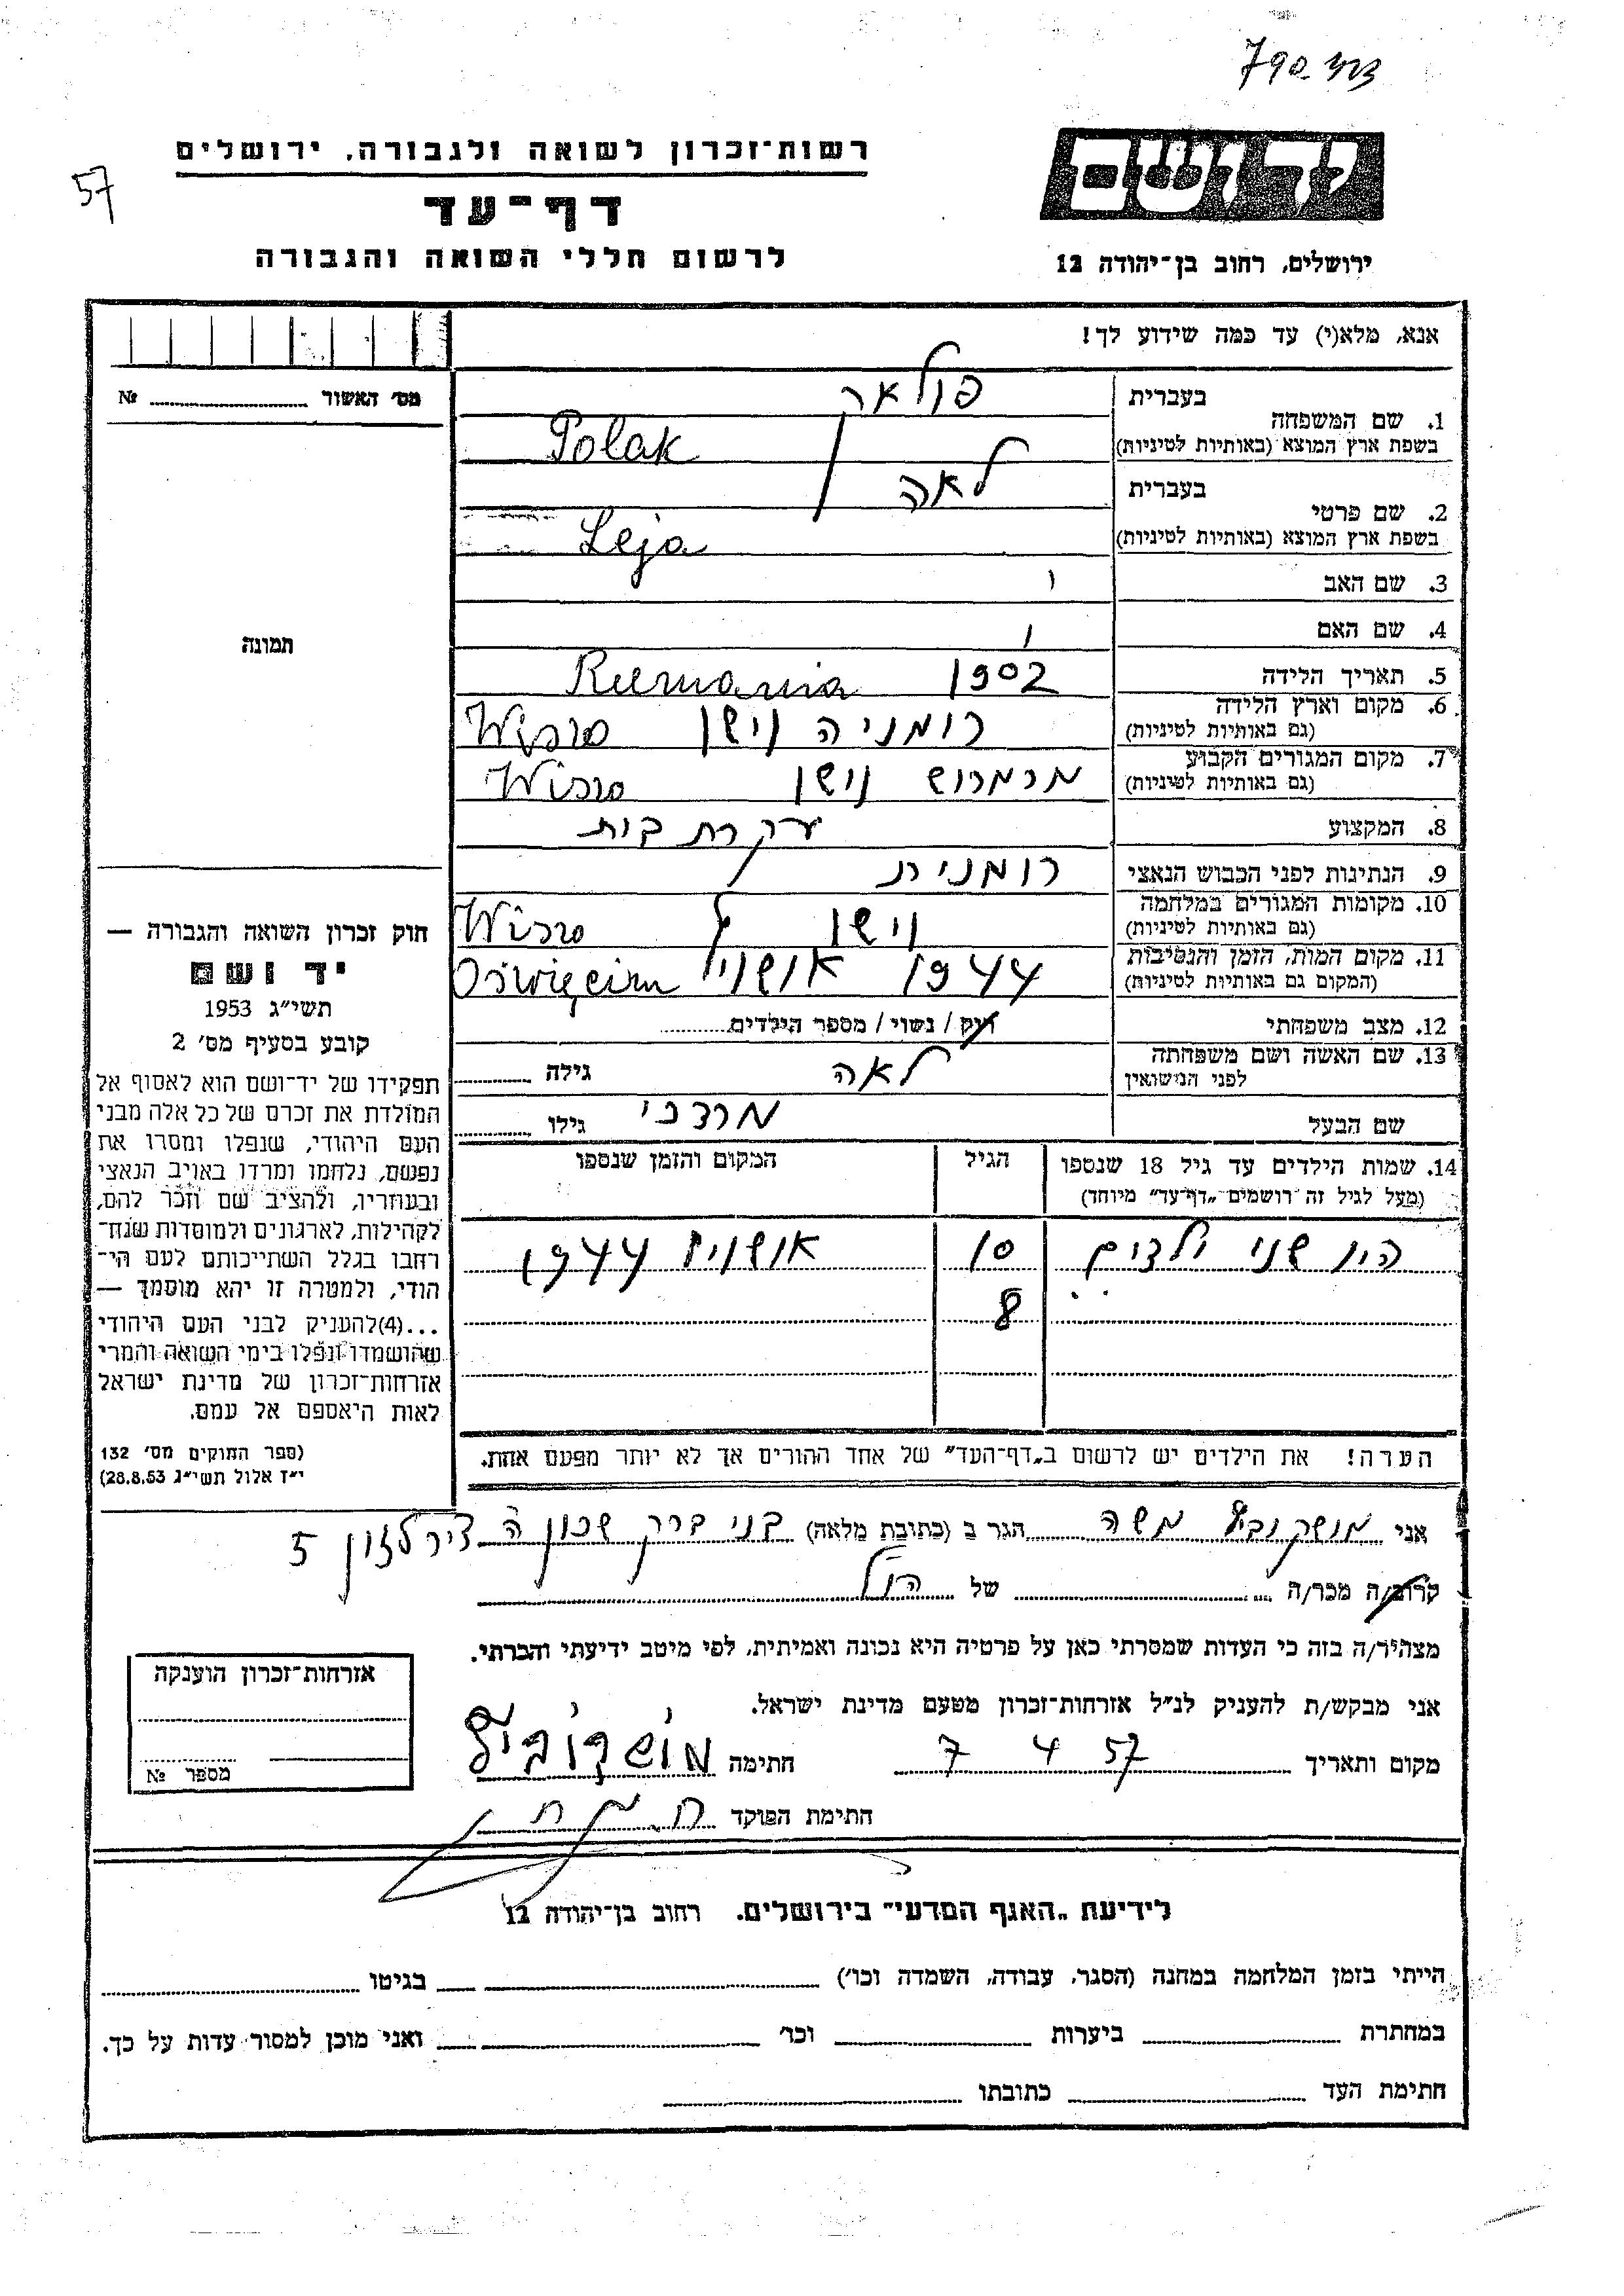 57
רשות־זכרון לשואה ולגבורה, ירושלים
דף־עד
לרשום חללי השואה והגבורה
יד ושם
ירושלים, רחוב בן־יהודה 12
אנא, מלא(י) עד כמה שידוע לך!
מס׳ האשור № 
1. שם המשפחה בעברית פולאק
בשפת ארץ המוצא (באותיות לטיניות) Polak
2. שם פרטי בעברית לאה
בשפת ארץ המוצא (באותיות לטיניות) Leja
3. שם האב
4. שם האם
5. תאריך הלידה 1902 Rumania
6. מקום וארץ הלידה (גם באותיות לטיניות) רומניה וישו Wiszo
7. מקום המגורים הקבוע (גם באותיות לטיניות) מרמרוש וישו Wiszo
8. המקצוע עקרת בית
9. הנתינות לפני הכבוש הנאצי רומנית
10. מקומות המגורים במלחמה (גם באותיות לטיניות) וישו Wiszo
11. מקום המות, הזמן והנסיבות (המקום גם באותיות לטיניות) 1944 אושויץ Oświęcim
12. מצב משפחתי רוק / נשוי / מספר הילדים
13. שם האשה ושם משפחתה לפני הנישואין לאה גילה
שם הבעל מרדכי גילו
14. שמות הילדים עד גיל 18 שנספו הגיל המקום והזמן שנספו
(מעל לגיל זה רושמים „דף־עד” מיוחד)
היו שני ילדים 10 אושויץ 1944
8
הערה! את הילדים יש לרשום ב„דף־העד” של אחד ההורים אך לא יותר מפעם אחת.
תמונה
חוק זכרון השואה והגבורה —
יד ושם
תשי״ג 1953
קובע בסעיף מס׳ 2
תפקידו של יד־ושם הוא לאסוף אל
המולדת את זכרם של כל אלה מבני
העם היהודי, שנפלו ומסרו את
נפשם, נלחמו ומרדו באויב הנאצי
ובעוזריו, ולהציב שם וזכר להם,
לקהילות, לארגונים ולמוסדות שנח־
רבו בגלל השתייכותם לעם הי־
הודי, ולמטרה זו יהא מוסמך —
...(4)להעניק לבני העם היהודי
שהושמדו ונפלו בימי השואה והמרי
אזרחות־זכרון של מדינת ישראל
לאות היאספם אל עמם.
(ספר החוקים מס׳ 132
י״ז אלול תשי״ג 28.8.53)
אני מושקוביץ משה הגר ב (כתובת מלאה) בני ברק שכון ה 5
קרוב/ה מכר/ה של הנ״ל
מצהיר/ה בזה כי העדות שמסרתי כאן על פרטיה היא נכונה ואמיתית, לפי מיטב ידיעתי והכרתי.
אני מבקש/ת להעניק לנ״ל אזרחות־זכרון מטעם מדינת ישראל.
מקום ותאריך 7 4 57 חתימה מושקוביץ
חתימת הפוקד
אזרחות־זכרון הוענקה
מספר №
לידיעת „האגף המדעי” בירושלים, רחוב בן־יהודה 12
הייתי בזמן המלחמה במחנה (הסגר, עבודה, השמדה וכו׳) בגיטו
במחתרת ביערות וכו׳ ואני מוכן למסור עדות על כך.
חתימת העד כתובתו